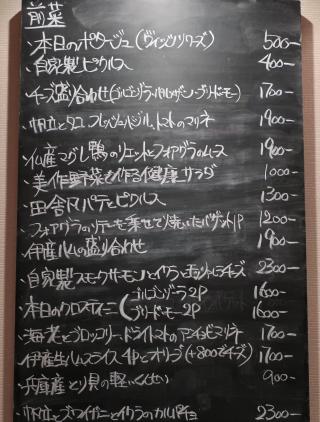 前菜
・本日のポタージュ(ヴィシソワーズ) 500-
・自家製ピクルス 400-
・チーズ盛り合わせ(ゴルゴンゾーラ・パルミジャーノ・ブリ・ド・モー) 1700-
・帆立とタコ フレッシュバジル、トマトのマリネ 1900-
・仏産マグレ鴨のリエットとフォアグラのムース 1900-
・美作野菜で作る健康サラダ 1000-
・田舎風パテとピクルス 1300-
・フォアグラのソテーを乗せて焼いたバゲット1P 1200-
・伊産ハムの盛り合わせ 1900-
・自家製スモークサーモンとイクラ、モッツァレラチーズ 2300-
・本日のクロスティーニ
ゴルゴンゾーラ2P 1600-
ブリドモー2P 1600-
・海老とブロッコリー、ドライトマトのアンチョビマリネ 1700-
・伊産生ハムスライス4Pとオリーブ(+800でチーズ) 1700-
・兵庫産とり貝の軽い 900-
・帆立とズワイガニとイクラの 2300-